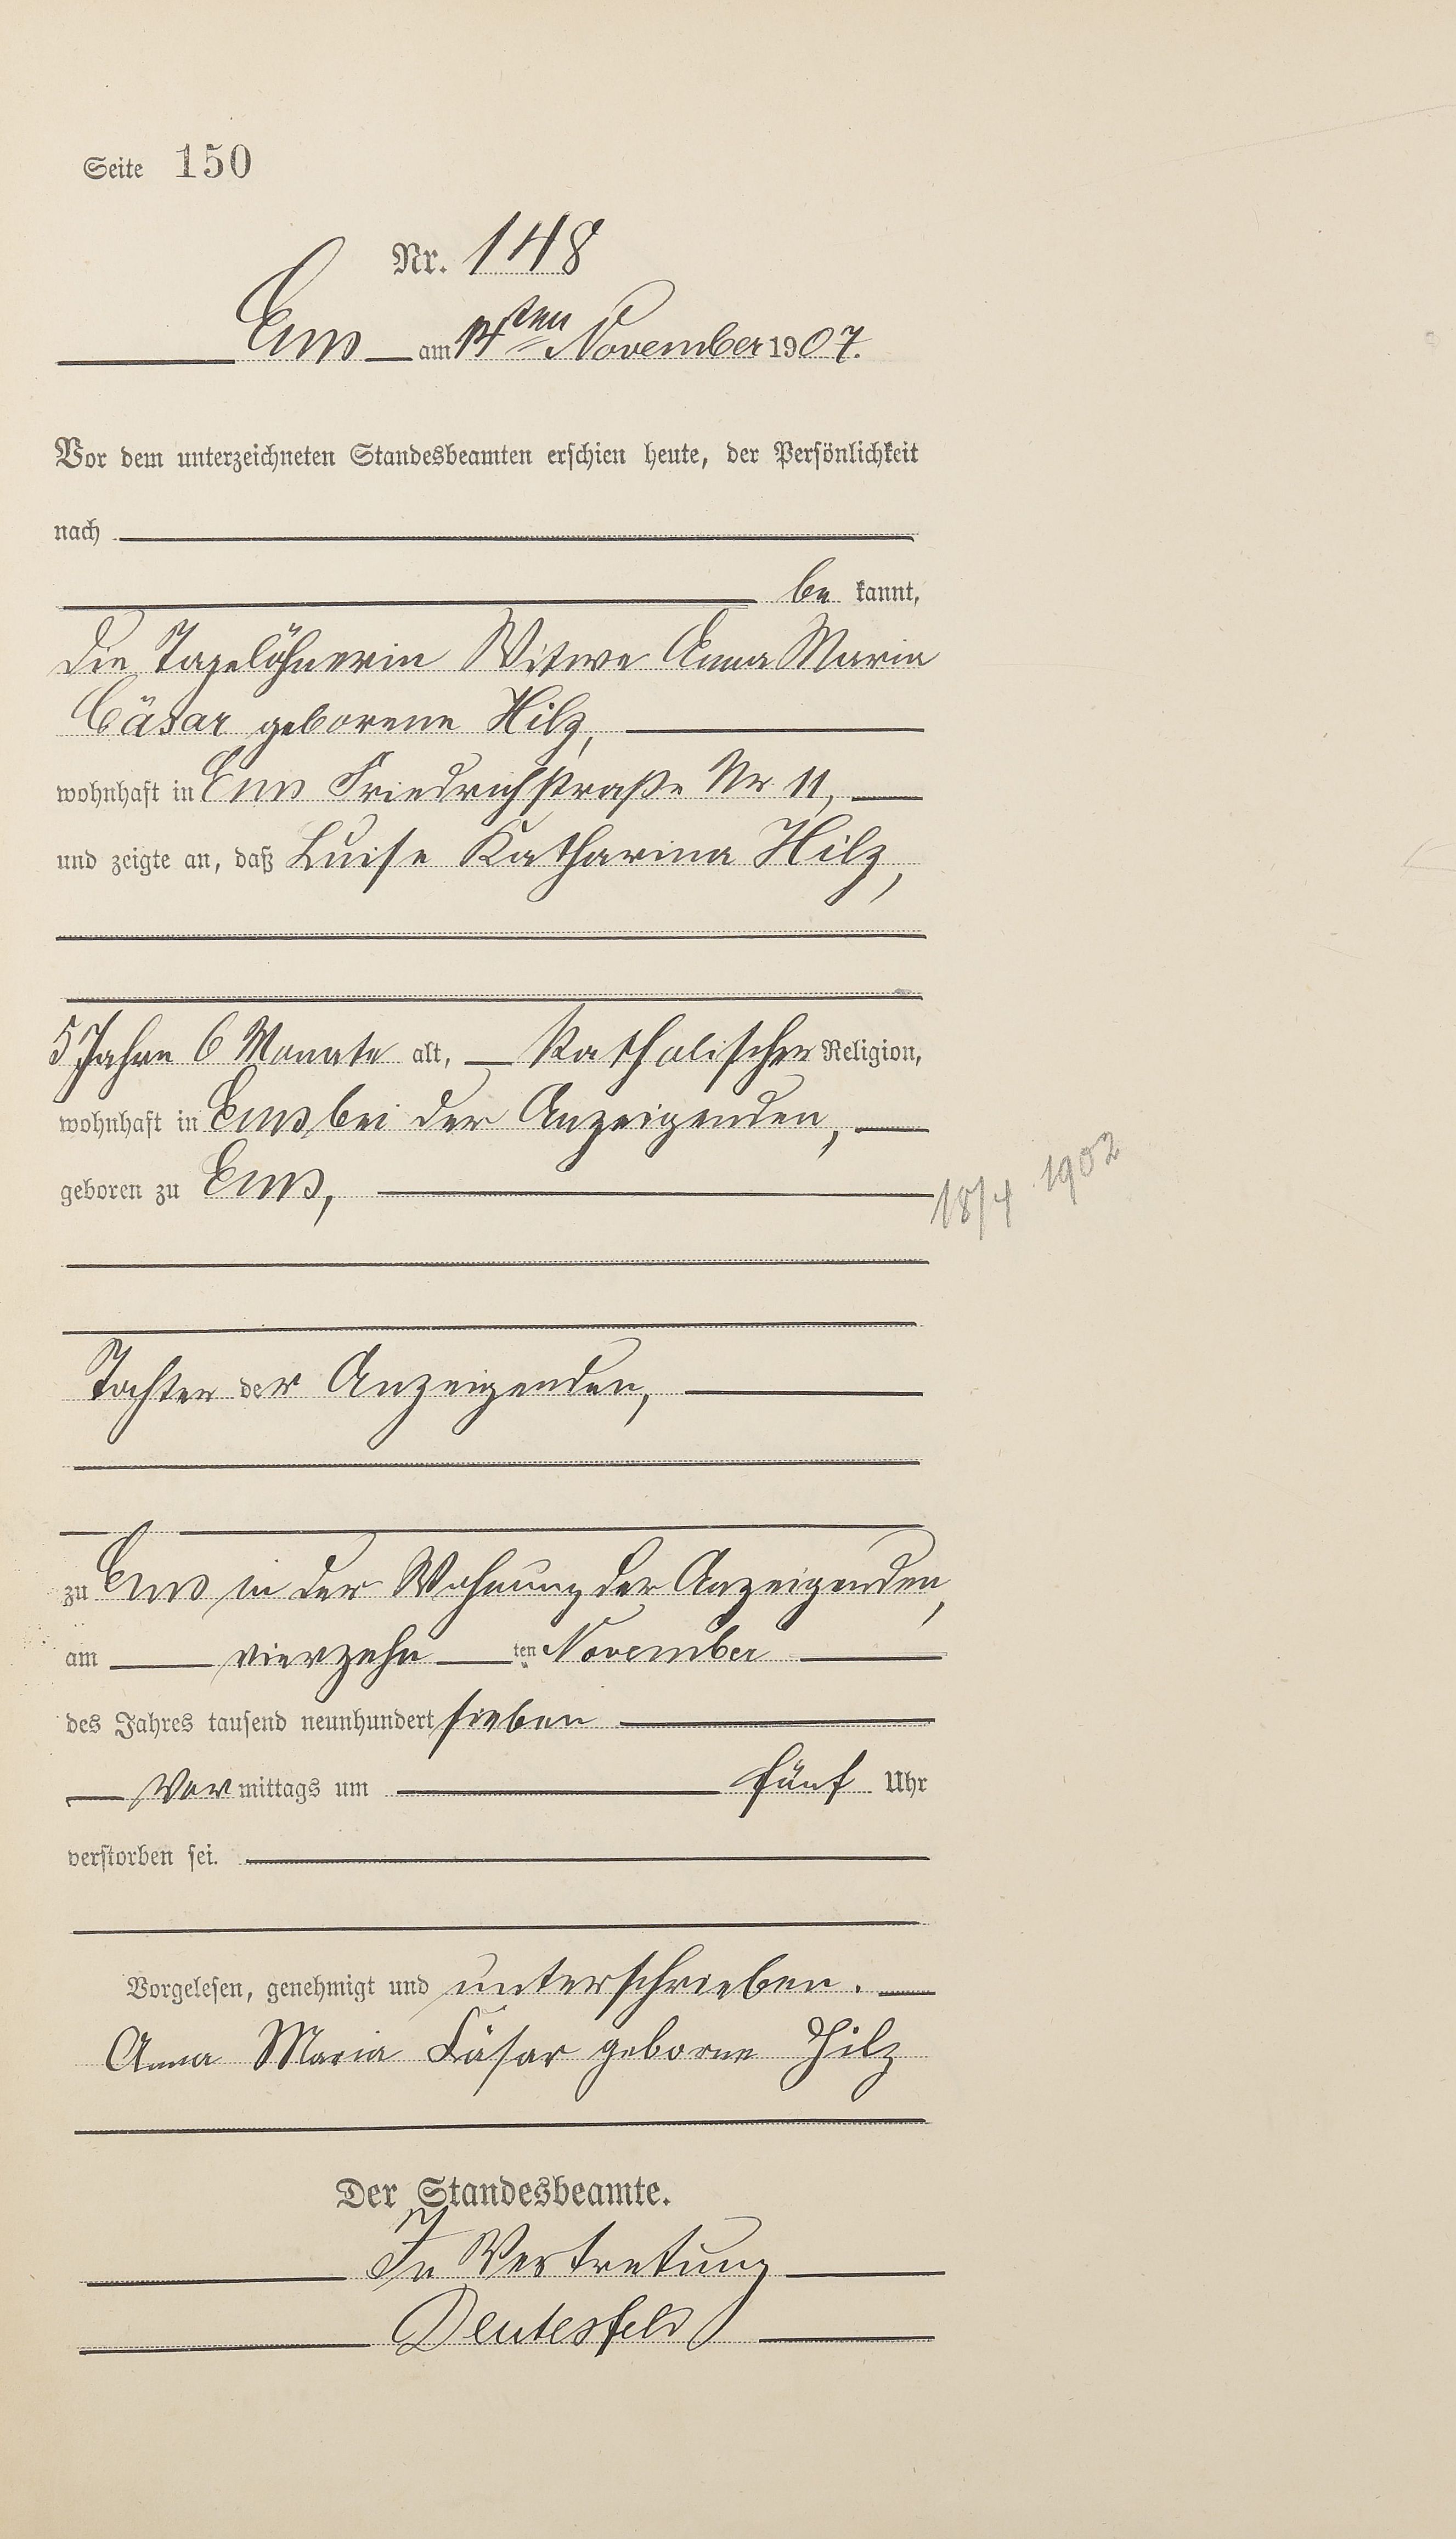 Seite 150
Nr. 148
Ems am 14ten November 1907.
Vor dem unterzeichneten Standesbeamten erschien heute, der Persönlichkeit
nach
be kannt,
die Tagelöhnerin Witwe Anna Maria
Cäsar geborene Hilz,
wohnhaft in Ems Friedrichstraße Nr. 11,
und zeigte an, daß Luise Katharina Hilz,
5 Jahre 6 Monate alt, Katholischer Religion,
wohnhaft in Ems bei der Anzeigenden,
geboren zu Ems,
18/4 1902
Tochter der Anzeigenden,
zu Ems in der Wohnung der Anzeigenden,
am vierzehn ten November
des Jahres tausend neunhundert sieben
Vor mittags um fünf Uhr
verstorben sei.
Vorgelesen, genehmigt und unterschrieben.
Anna Maria Cäsar geborne Hilz
Der Standesbeamte.
In Vertretung
Deutesfeld